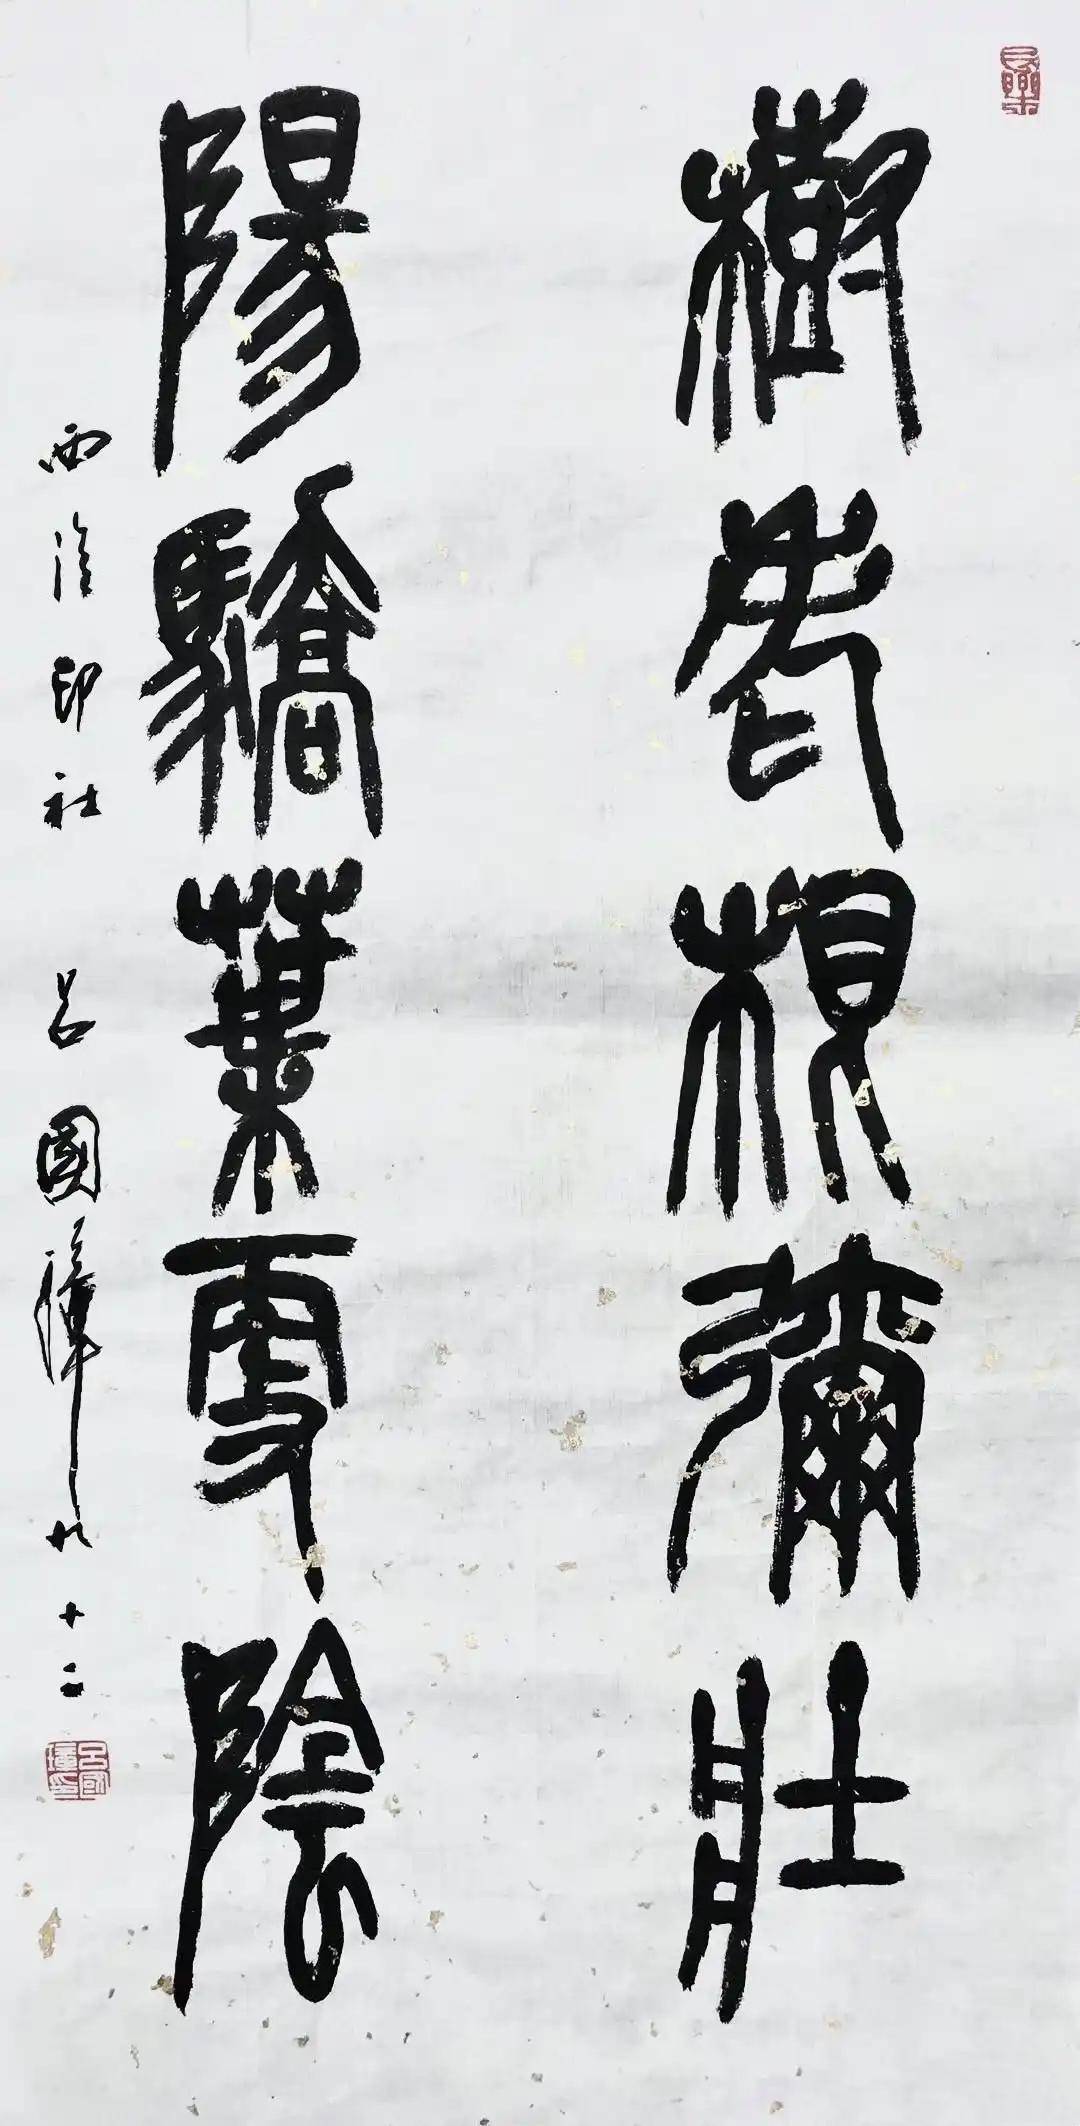 樹老根彌壯
陽驕葉更陰
西泠印社 呂國璋 九十二
呂國璋印